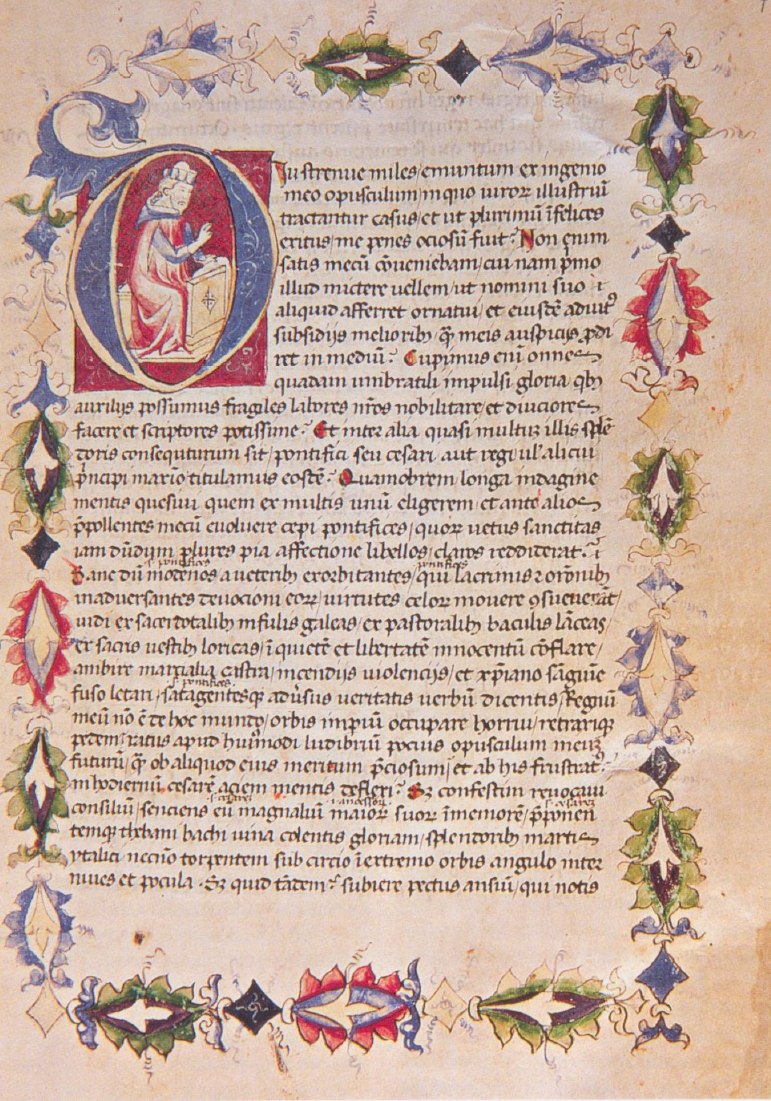 Diu strenue miles emuntum ex ingenio
meo opusculum in quo uiror illustriũ
tractantur casus et ut plurimũ ĩfelices
exitus me penes ociosũ fuit. Non enim
satis mecũ cõueniebam cui nam p̃mo
illud mictere uellem ut nomini suo
aliquid afferret ornatui et eiusdẽ adiut
subsidijs melioribꝫ q̃ meis auspicijs ꝓdi
ret in mediũ. Cupimus eni onnes
quadam umbratili impulsi gloria qbꝫ
auxilijs possumus fragiles labores nr̃os nobilitare et diuciores
facere et scriptores potissime. Et inter alia quasi multuꝫ illis splẽ
doris consequturum sit pontifici seu cesari aut regi ul' alicui
p̃ncipi maxio titulamus eosdẽ. Quamobrem longa indagine
mentis quesiui quem ex multis unũ eligerem et ante alios
p̃pollentes mecũ euoluere cepi pontifices quor uetus sanctitas
iam dũdum plures pia affectione libellos claros reddiderat
s. pontifices pontifices
Sane dũ modẽnos a ueteribꝫ exorbitantes qui lacrimis ⁊ orõnibꝫ
inaduersantes deuocioni eor uirtutes celor mouere ꝯsueuerãt
uidi ex sacerdotalibꝫ infulis galeas ex pastoralibꝫ baculis lãceas
ex sacris uestibꝫ loricas ĩ quietẽ et libertatẽ innocentũ cõflare
ambire marcialia castra incendijs uiolencijs et xp̃iano sãguine
s. pontifices
fuso letari satagentesqꝫ adũsus ueritatis uerbũ dicentis Regnũ
meũ nõ ẽ de hoc mundo orbis impiũ occupare horrui retraxiqꝫ
pedem ratus apud hui9modi ludibriũ pocius opusculum meuꝫ
futurũ q̃ ob aliquod eius meritum p̃ciosum et ab his frustrat
in hodiernũ cesarẽ aciem mentis deflexi. Sꝫ confestim reuocaui
consiliũ senciens eũ magnaliũ maior suor ĩmemorẽ p̃ponen
temqꝫ thebani bachi uina colentis gloriam splendoribꝫ martis
ytalici necnõ torpentem sub circio ĩ extremo orbis angulo inter
niues et pocula. Sꝫ quid tãdem subiere pectus ansiũ qui notis